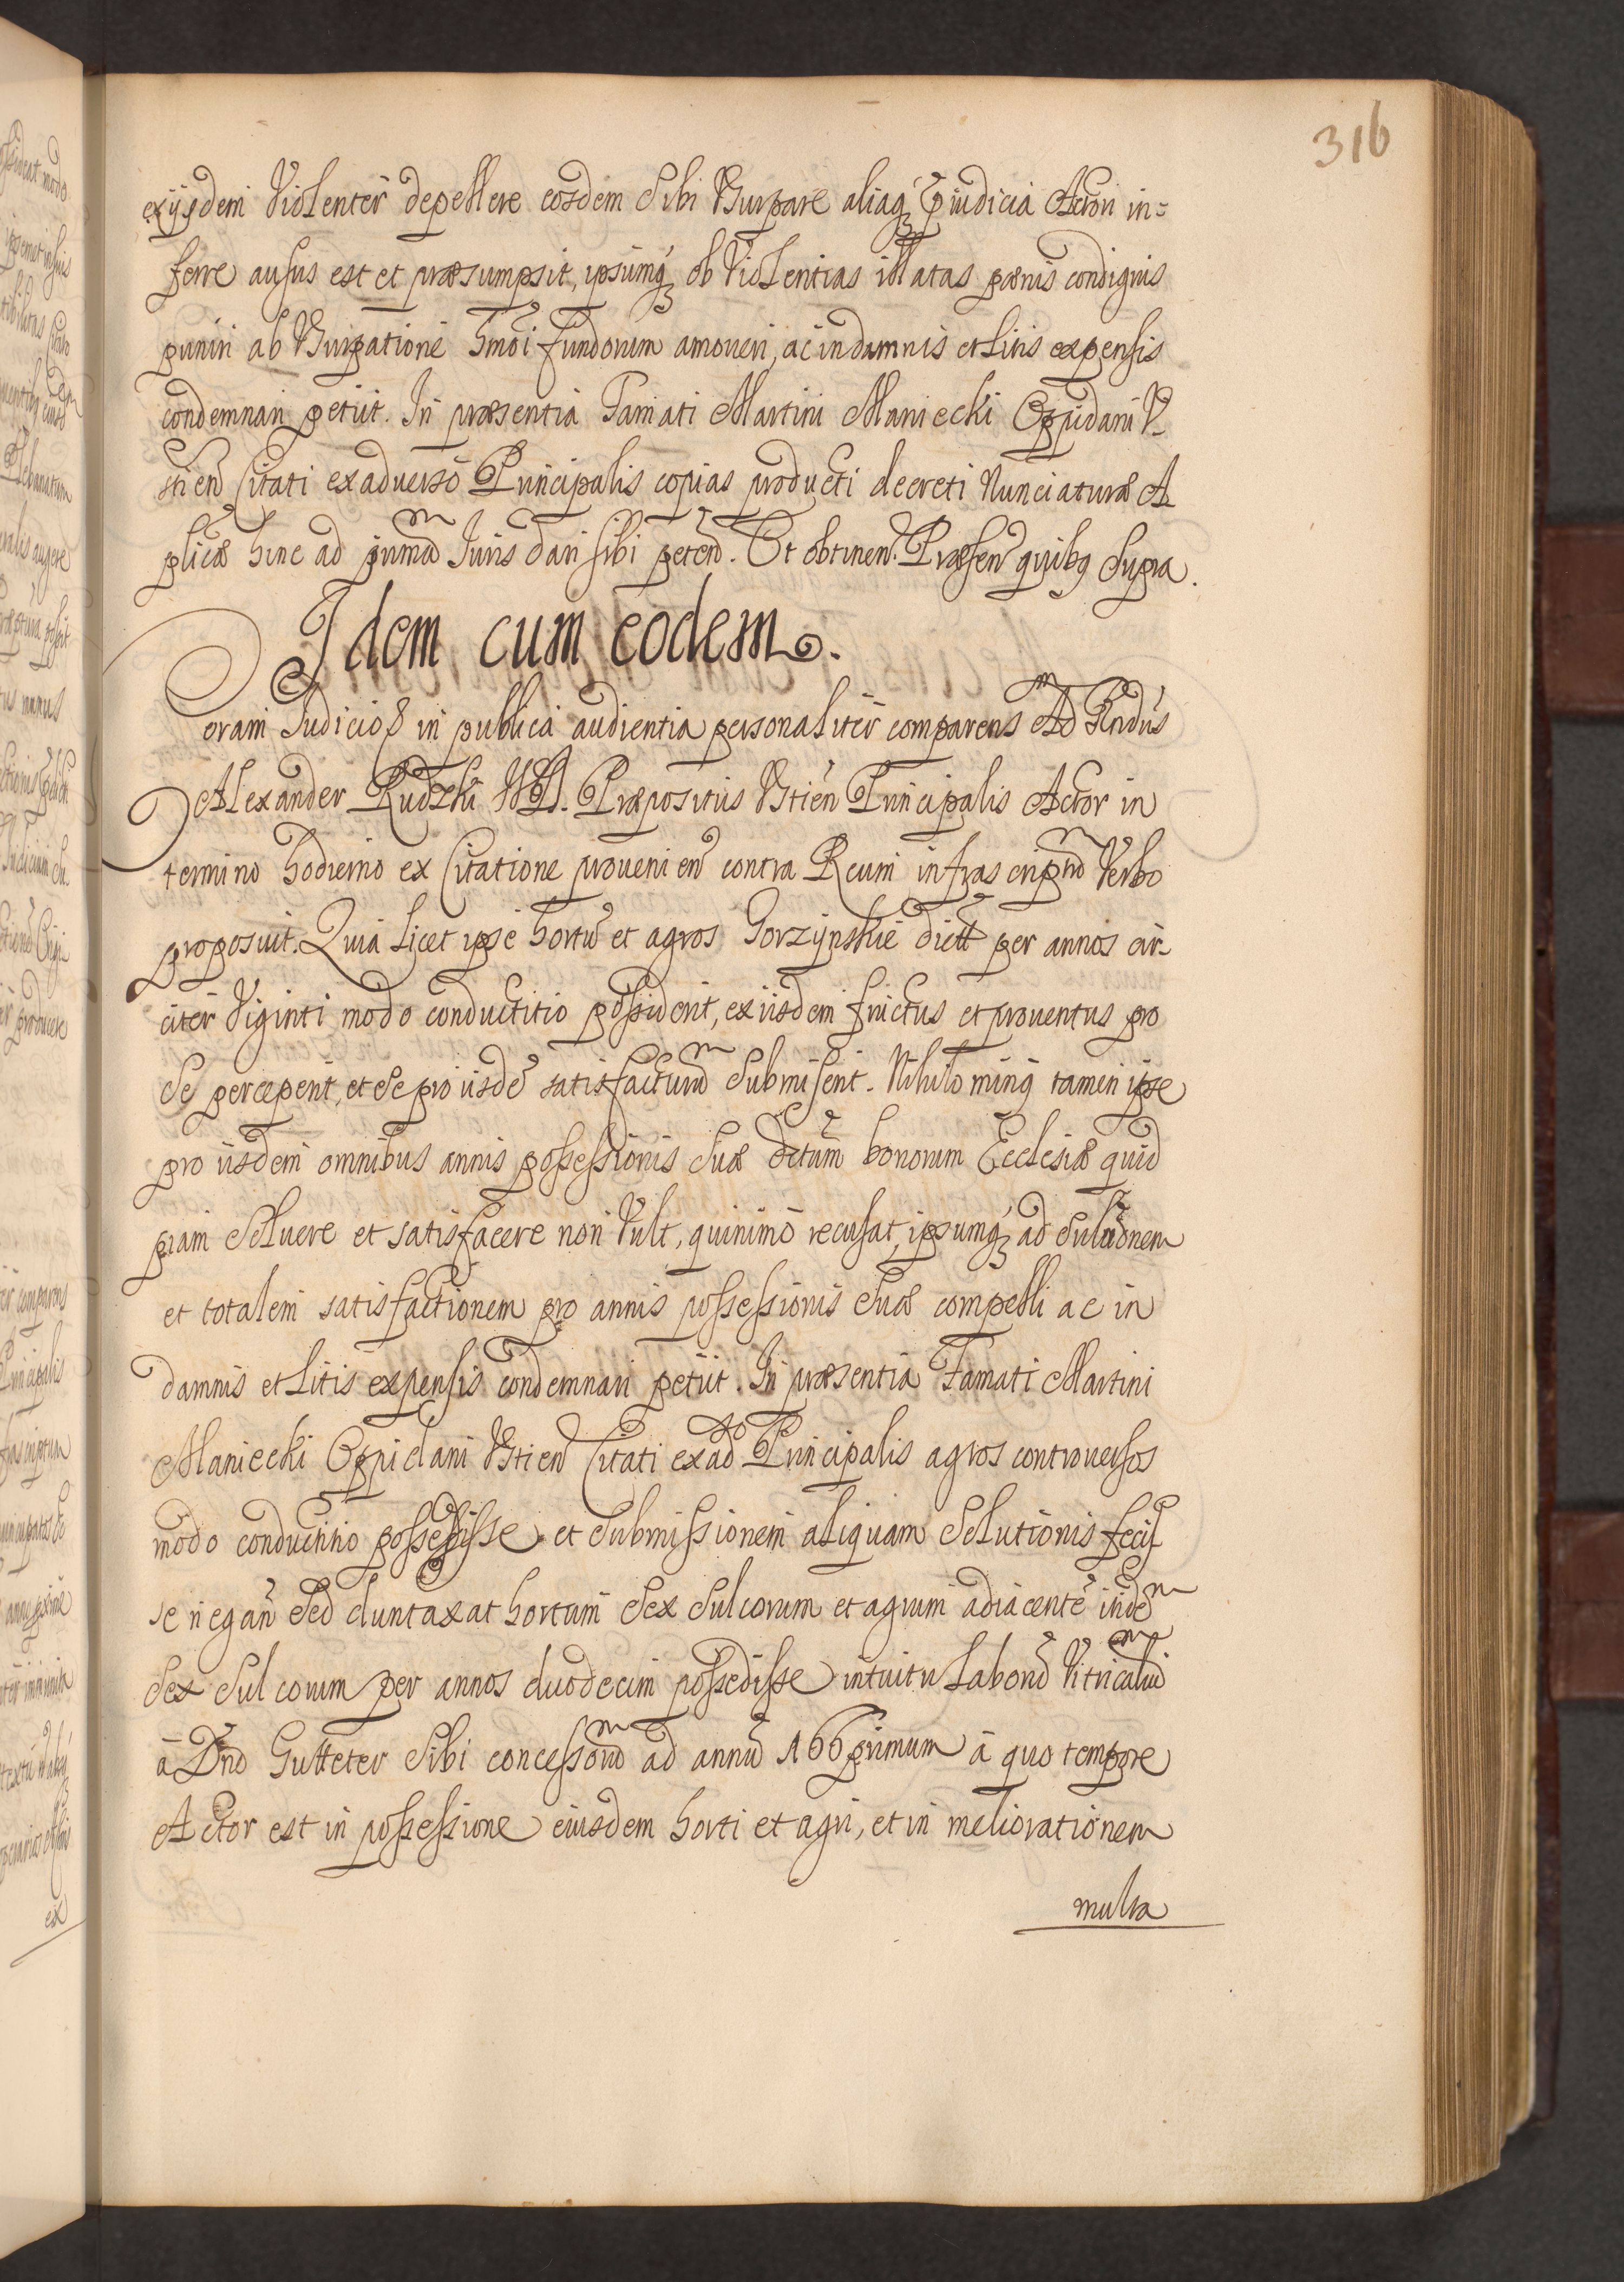 316
exijsdem Violenter depellere eosdem Sibi Vsurpare aliaq́ꝫ p̃iudicia Actori in=
ferre ausus est et præsumpsit, ipsumq́ꝫ ob Violentias illatas pænis condignis
puniri ab Vsurpatione hm̃oi fundorum amoveri, ac in damnis et Litis expensis
condemnari petiit. In præsentia Famati Martini Maniecki Oppidani V-
stien̄ Citati exadverso Principalis copias producti decreti Nunciaturæ A-
plicæ hinc ad primã Juris dari sibi peten̄. Et obtinen̄. Præsen̄ quibꝫ Supra.
Idem cum eodem.
Coram Judicio & in publica audientia personaliter comparens Ad̃m R̃ndus
Alexander Rudzki Præpositus Vstien̄ Principalis Actor in
termino hodierno ex Citatione provenien̄ contra Reum infrascriptũ Verbo
proposuit. Quia Licet ipse hortũ et agros Gorzÿnskie dict per annos cir-
citer Viginti modo conductitio possiderit, ex iisdem fructus et proventus pro
Se perceperit, et se pro iisdẽ satisfacturũ Submiserit. Nihilo minꝰ tamen ipse
pro iisdem omnibus annis possessionis Suæ dctum̃ bonorum Ecclesiæ quid
piam Soluere et satisfacere non Vult, quinimo recusat, ipsumq́ꝫ ad Sulũõnem
et totalem satisfactionem pro annis possessionis Suæ compelli ac in
damnis et Litis expensis condemnari petiit. In præsentia Famati Martini
Maniecki Oppidani Vstien̄ Citati exad̃ Principalis agros controversos
modo conductitio possedisse et Submissionem aliquam Solutionis fecis
se negan̄ Sed duntaxat hortum Sex Sulcorum et agrum adiacentẽ indẽ
Sex Sulcorum per annos duodecim possedisse intuitu Laborũ Vitricaliũ
à Dño Gutteter Sibi concessorũ ad annũ 166 primum à quo tempore
Actor est in possessione eiusdem horti et agri, et in meliorationem
multa